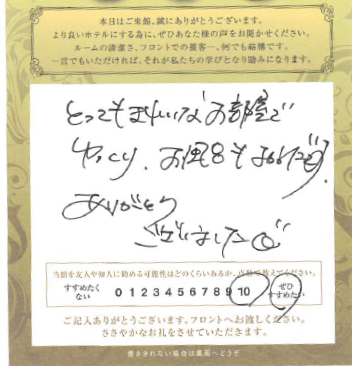 本日はご来館、誠にありがとうございます。
より良いホテルにする為に、ぜひあなた様の声をお聞かせください。
ルームの清潔さ、フロントでの接客…、何でも結構です。
一言でもいただければ、それが私たちの学びとなり励みになります。
とってもきれいなお部屋で
ゆっくり、お風呂も
ありがとう
ございました
当館を友人や知人に勧める可能性はどのくらいあるか、点数で教えてください。
すすめたくない 0 1 2 3 4 5 6 7 8 9 10 ぜひすすめたい
ご記入ありがとうございます。フロントへお渡しください。
ささやかなお礼をさせていただきます。
書ききれない場合は裏面へどうぞ